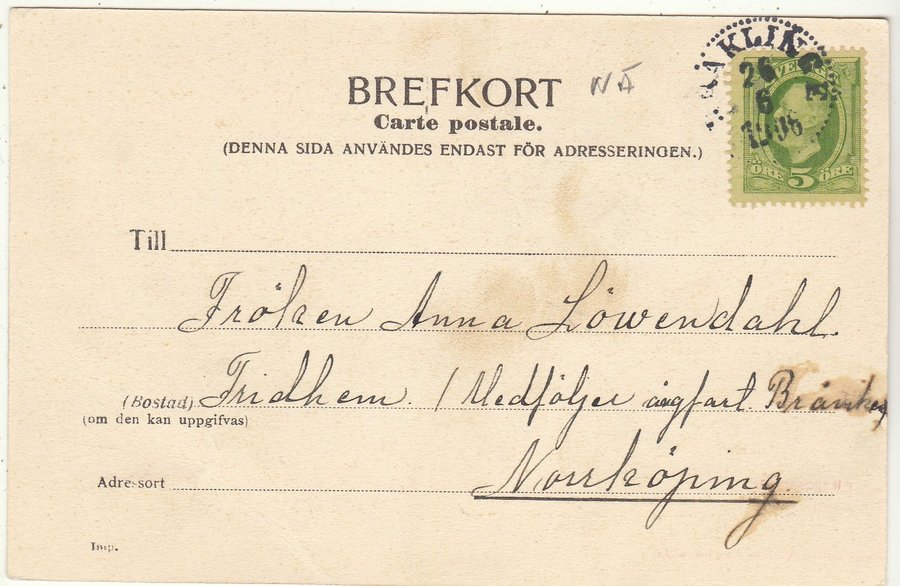 BREFKORT NÄ
Carte postale.
(DENNA SIDA ANVÄNDES ENDAST FÖR ADRESSERINGEN.)
KLINGE
26
6
SVERIGE
ÖRE 5 ÖRE
Till
Fröken Anna Löwendahl.
(Bostad) Fridhem. / Medföljer ångfart.
(om den kan uppgifvas)
Norrköping
Adressort
Imp.